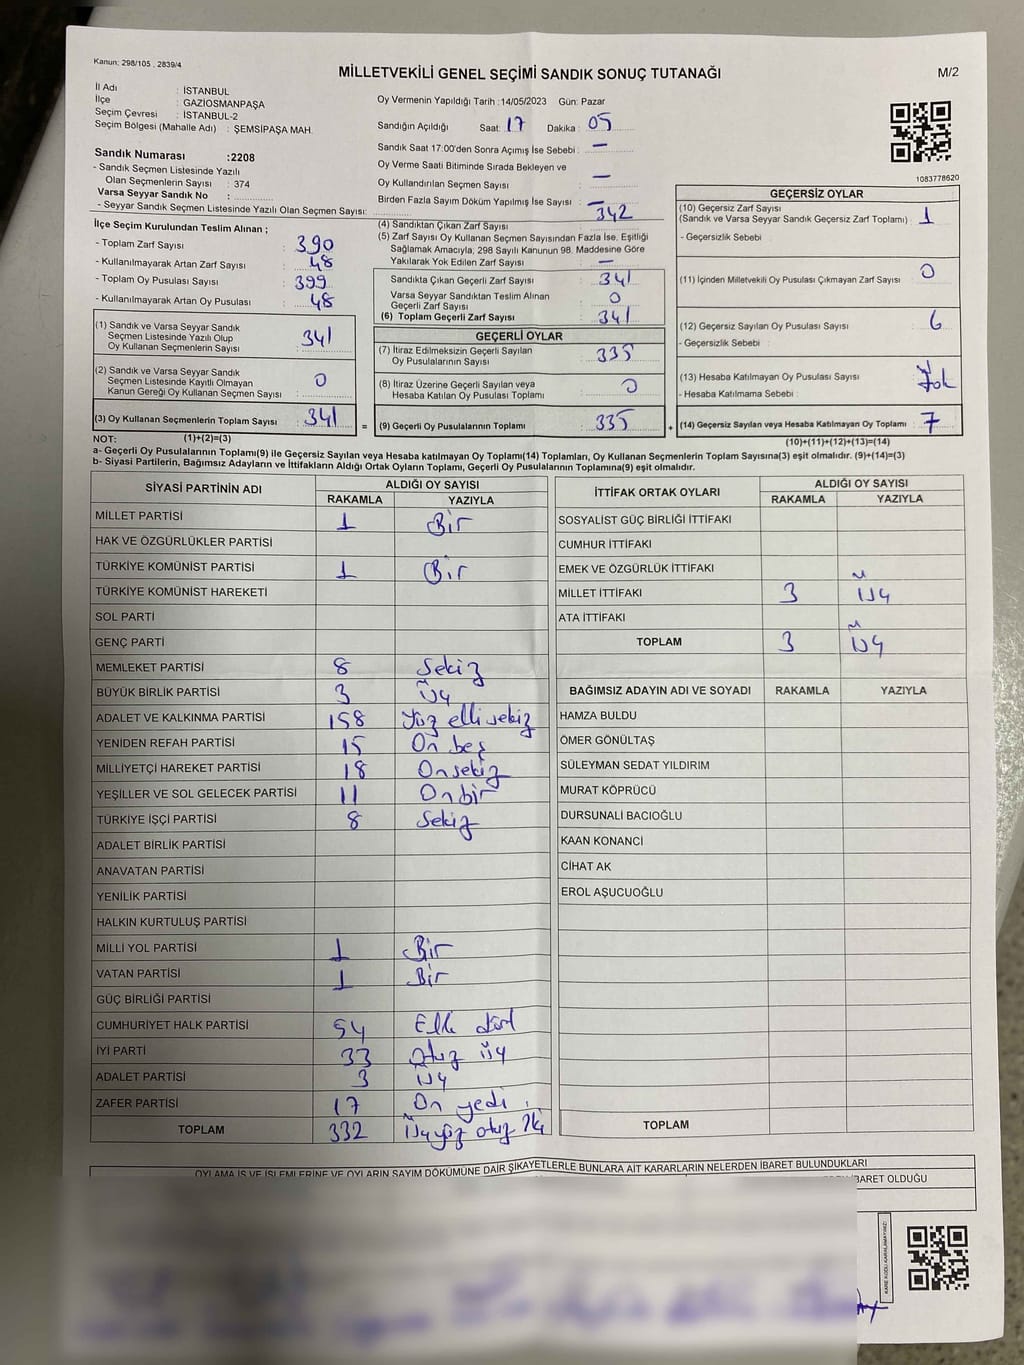 Kanun: 298/105 , 2839/4
MİLLETVEKİLİ GENEL SEÇİMİ SANDIK SONUÇ TUTANAĞI
M/2
İl Adı : İSTANBUL
İlçe : GAZİOSMANPAŞA
Seçim Çevresi : İSTANBUL-2
Seçim Bölgesi (Mahalle Adı) : ŞEMSİPAŞA MAH.
Oy Vermenin Yapıldığı Tarih :14/05/2023 Gün: Pazar
Sandığın Açıldığı Saat: 17 Dakika : 05
Sandık Saat 17:00'den Sonra Açımış İse Sebebi : —
Oy Verme Saati Bitiminde Sırada Bekleyen ve
Oy Kullandırılan Seçmen Sayısı —
Birden Fazla Sayım Döküm Yapılmış İse Sayısı : —
1083778620
Sandık Numarası :2208
- Sandık Seçmen Listesinde Yazılı
Olan Seçmenlerin Sayısı : 374
Varsa Seyyar Sandık No :
- Seyyar Sandık Seçmen Listesinde Yazılı Olan Seçmen Sayısı:
İlçe Seçim Kurulundan Teslim Alınan ;
- Toplam Zarf Sayısı : 390
- Kullanılmayarak Artan Zarf Sayısı : 48
- Toplam Oy Pusulası Sayısı : 399
- Kullanılmayarak Artan Oy Pusulası : 48
(1) Sandık ve Varsa Seyyar Sandık
Seçmen Listesinde Yazılı Olup
Oy Kullanan Seçmenlerin Sayısı : 341
(2) Sandık ve Varsa Seyyar Sandık
Seçmen Listesinde Kayıtlı Olmayan
Kanun Gereği Oy Kullanan Seçmen Sayısı : 0
(3) Oy Kullanan Seçmenlerin Toplam Sayısı : 341 =
(4) Sandıktan Çıkan Zarf Sayısı : 342
(5) Zarf Sayısı Oy Kullanan Seçmen Sayısından Fazla İse, Eşitliği
Sağlamak Amacıyla; 298 Sayılı Kanunun 98. Maddesine Göre
Yakılarak Yok Edilen Zarf Sayısı : —
Sandıkta Çıkan Geçerli Zarf Sayısı : 341
Varsa Seyyar Sandıktan Teslim Alınan
Geçerli Zarf Sayısı : 0
(6) Toplam Geçerli Zarf Sayısı : 341
GEÇERLİ OYLAR
(7) İtiraz Edilmeksizin Geçerli Sayılan
Oy Pusulalarının Sayısı : 335
(8) İtiraz Üzerine Geçerli Sayılan veya
Hesaba Katılan Oy Pusulası Toplamı : 0
(9) Geçerli Oy Pusulalarının Toplamı : 335 +
GEÇERSİZ OYLAR
(10) Geçersiz Zarf Sayısı
(Sandık ve Varsa Seyyar Sandık Geçersiz Zarf Toplamı) : 1
- Geçersizlik Sebebi :
(11) İçinden Milletvekili Oy Pusulası Çıkmayan Zarf Sayısı : 0
(12) Geçersiz Sayılan Oy Pusulası Sayısı : 6
- Geçersizlik Sebebi :
(13) Hesaba Katılmayan Oy Pusulası Sayısı : Yok
- Hesaba Katılmama Sebebi :
(14) Geçersiz Sayılan veya Hesaba Katılmayan Oy Toplamı : 7
NOT: (1)+(2)=(3)
(10)+(11)+(12)+(13)=(14)
a- Geçerli Oy Pusulalarının Toplamı(9) ile Geçersiz Sayılan veya Hesaba katılmayan Oy Toplamı(14) Toplamları, Oy Kullanan Seçmenlerin Toplam Sayısına(3) eşit olmalıdır. (9)+(14)=(3)
b- Siyasi Partilerin, Bağımsız Adayların ve İttifakların Aldığı Ortak Oyların Toplamı, Geçerli Oy Pusulalarının Toplamına(9) eşit olmalıdır.
SİYASİ PARTİNİN ADI ALDIĞI OY SAYISI
RAKAMLA YAZIYLA
MİLLET PARTİSİ 1 Bir
HAK VE ÖZGÜRLÜKLER PARTİSİ
TÜRKİYE KOMÜNİST PARTİSİ 1 Bir
TÜRKİYE KOMÜNİST HAREKETİ
SOL PARTİ
GENÇ PARTİ
MEMLEKET PARTİSİ 8 Sekiz
BÜYÜK BİRLİK PARTİSİ 3 Üç
ADALET VE KALKINMA PARTİSİ 158 Yüz elli sekiz
YENİDEN REFAH PARTİSİ 15 On beş
MİLLİYETÇİ HAREKET PARTİSİ 18 On sekiz
YEŞİLLER VE SOL GELECEK PARTİSİ 11 On bir
TÜRKİYE İŞÇİ PARTİSİ 8 Sekiz
ADALET BİRLİK PARTİSİ
ANAVATAN PARTİSİ
YENİLİK PARTİSİ
HALKIN KURTULUŞ PARTİSİ
MİLLİ YOL PARTİSİ 1 Bir
VATAN PARTİSİ 1 Bir
GÜÇ BİRLİĞİ PARTİSİ
CUMHURİYET HALK PARTİSİ 54 Elli dört
İYİ PARTİ 33 Otuz üç
ADALET PARTİSİ 3 Üç
ZAFER PARTİSİ 17 On yedi
TOPLAM 332 Üçyüz otuz İki
İTTİFAK ORTAK OYLARI ALDIĞI OY SAYISI
RAKAMLA YAZIYLA
SOSYALİST GÜÇ BİRLİĞİ İTTİFAKI
CUMHUR İTTİFAKI
EMEK VE ÖZGÜRLÜK İTTİFAKI
MİLLET İTTİFAKI 3 Üç
ATA İTTİFAKI
TOPLAM 3 Üç
BAĞIMSIZ ADAYIN ADI VE SOYADI RAKAMLA YAZIYLA
HAMZA BULDU
ÖMER GÖNÜLTAŞ
SÜLEYMAN SEDAT YILDIRIM
MURAT KÖPRÜCÜ
DURSUNALİ BACIOĞLU
KAAN KONANCİ
CİHAT AK
EROL AŞUCUOĞLU
TOPLAM
OYLAMA İŞ VE İŞLEMLERİNE VE OYLARIN SAYIM DÖKÜMÜNE DAİR ŞİKAYETLERLE BUNLARA AİT KARARLARIN NELERDEN İBARET BULUNDUKLARI
BARET OLDUĞU